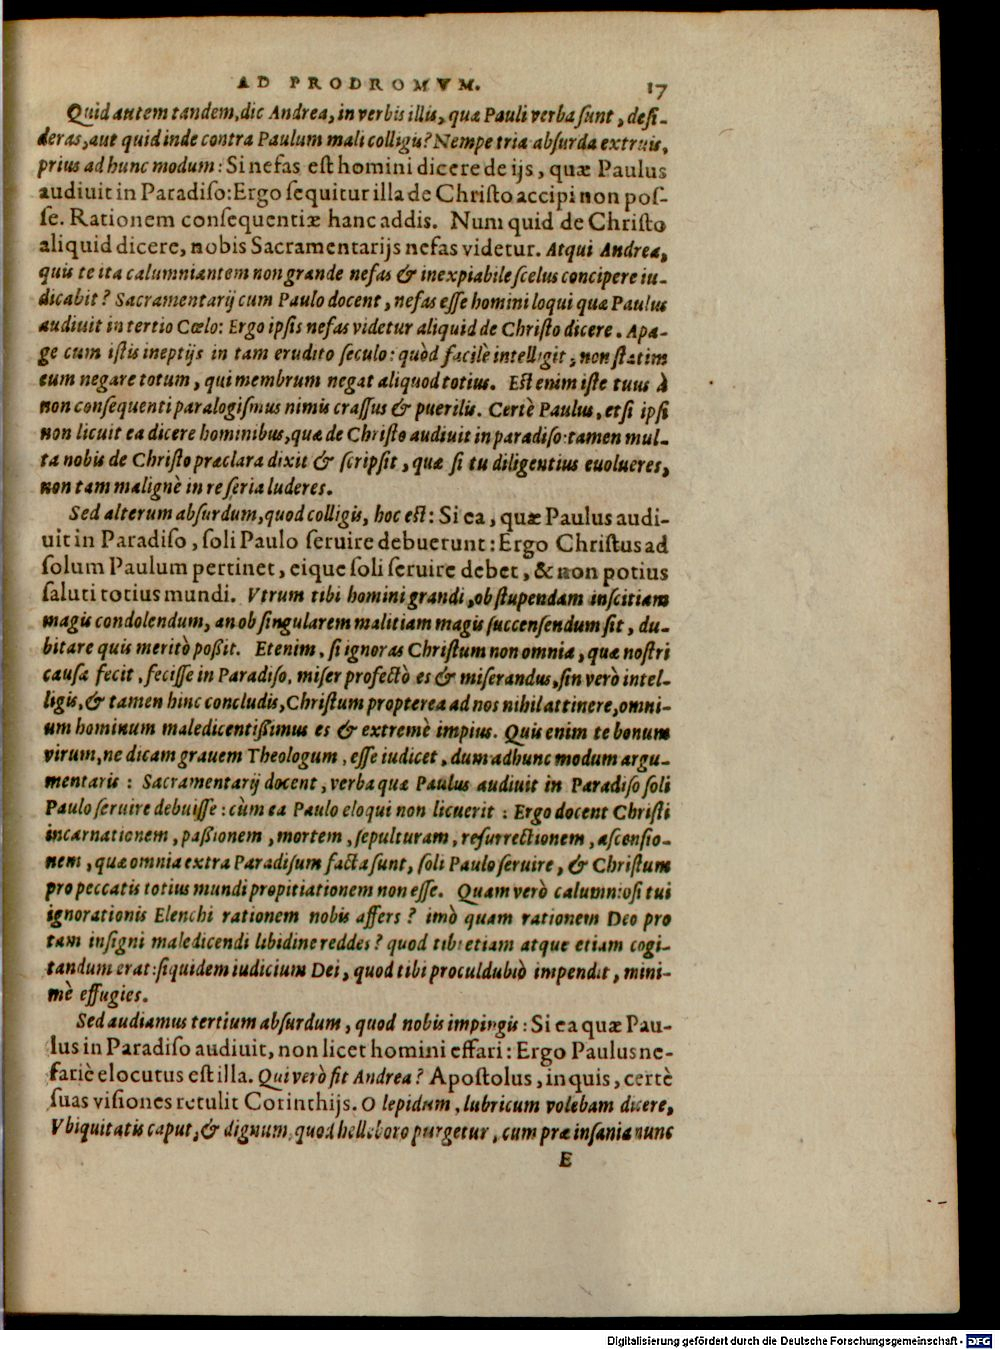 AD PRODROMVM. 17
Quid autem tandem, dic Andrea, in verbis illis, quæ Pauli verba sunt, desi-
deras, aut quid inde contra Paulum mali colligis? Nempe tria absurda extruis,
prius ad hunc modum: Si nefas est homini dicere de ijs, quæ Paulus
audiuit in Paradiso: Ergo sequitur illa de Christo accipi non pos-
se. Rationem consequentiæ hanc addis. Num quid de Christo
aliquid dicere, nobis Sacramentarijs nefas videtur. Atqui Andrea,
quis te ita calumniantem non grande nefas & inexpiabile scelus concipere iu-
dicabit? Sacramentarij cum Paulo docent, nefas esse homini loqui quæ Paulus
audiuit in tertio Cœlo: Ergo ipsis nefas videtur aliquid de Christo dicere. Apa-
ge cum istis ineptijs in tam erudito seculo: quòd facilè intelligit, non statim
eum negare totum, qui membrum negat aliquod totius. Est enim iste tuus à
non consequenti paralogismus nimis crassus & puerilis. Certè Paulus, etsi ipsi
non licuit ea dicere hominibus, quæ de Christo audiuit in paradiso: tamen mul-
ta nobis de Christo præclara dixit & scripsit, quæ si tu diligentius euolueres,
non tam malignè in re seria luderes.
Sed alterum absurdum, quod colligis, hoc est: Si ea, quæ Paulus audi-
uit in Paradiso, soli Paulo seruire debuerunt: Ergo Christus ad
solum Paulum pertinet, eique soli seruire debet, & non potius
saluti totius mundi. Vtrum tibi homini grandi, ob stupendam inscitiam
magis condolendum, an ob singularem malitiam magis succensendum sit, du-
bitare quis meritò poßit. Etenim, si ignoras Christum non omnia, quæ nostri
causa fecit, fecisse in Paradiso, miser profectò es & miserandus, sin verò intel-
ligis, & tamen hinc concludis, Christum propterea ad nos nihil attinere, omni-
um hominum maledicentißimus es & extremè impius. Quis enim te bonum
virum, ne dicam grauem Theologum, esse iudicet, dum ad hunc modum argu-
mentaris: Sacramentarij docent, verba quæ Paulus audiuit in Paradiso soli
Paulo seruire debuisse: cùm ea Paulo eloqui non licuerit: Ergo docent Christi
incarnationem, paßionem, mortem, sepulturam, resurrectionem, ascensio-
nem, quæ omnia extra Paradisum facta sunt, soli Paulo seruire, & Christum
pro peccatis totius mundi propitiationem non esse. Quam verò calumniosi tui
ignorationis Elenchi rationem nobis affers? imò quam rationem Deo pro
tam insigni maledicendi libidine reddes? quod tibi etiam atque etiam cogi-
tandum erat: siquidem iudicium Dei, quod tibi proculdubiò impendit, mini-
mè effugies.
Sed audiamus tertium absurdum, quod nobis impingis: Si ea quæ Pau-
lus in Paradiso audiuit, non licet homini effari: Ergo Paulus ne-
fariè elocutus est illa. Qui verò fit Andrea? Apostolus, inquis, certè
suas visiones retulit Corinthijs. O lepidum, lubricum volebam dicere,
Vbiquitatis caput, & dignum, quod helleboro purgetur, cum præ insania nunc
E
Digitalisierung gefördert durch die Deutsche Forschungsgemeinschaft - DFG